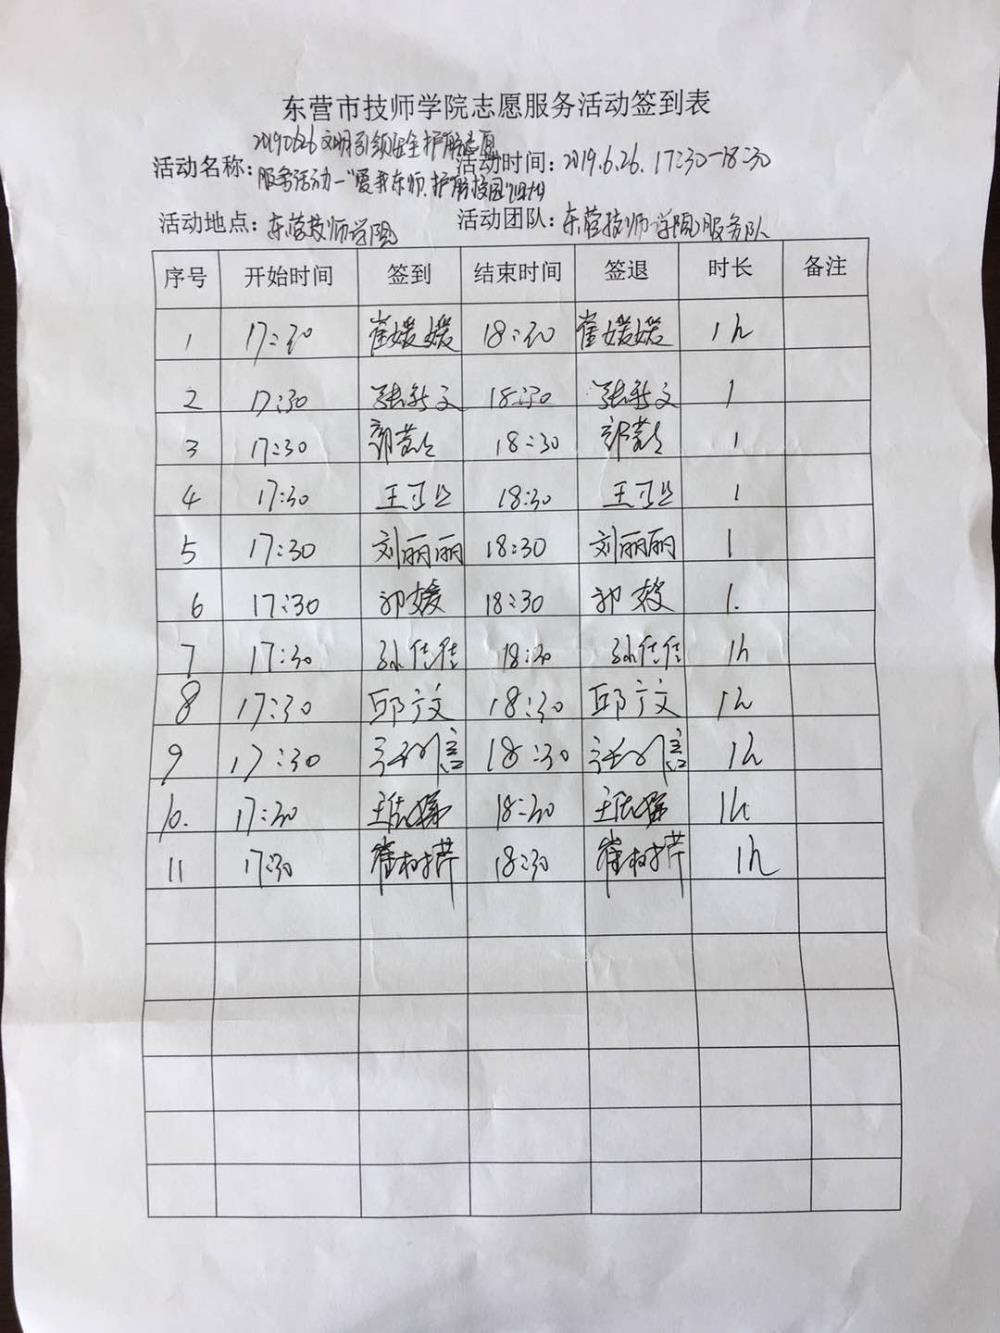 东营市技师学院志愿服务活动签到表
20190626文明引领安全护航志愿
活动名称：服务活动—“爱我东师，护航校园”
活动时间：2019.6.26. 17:30-18:30
活动地点：东营技师学院 活动团队：东营技师学院服务队
序号 开始时间 签到 结束时间 签退 时长 备注
1 17:30 崔媛媛 18:30 崔媛媛 1h
2 17:30 张新文 18:30 张新文 1
3 17:30 18:30 1
4 17:30 18:30 1
5 17:30 刘丽丽 18:30 刘丽丽 1
6 17:30 18:30 1.
7 17:30 孙佳佳 18:30 孙佳佳 1h
8 17:30 邱文 18:30 邱文 1h
9 17:30 18:30 1h
10. 17:30 18:30 1h
11 17:30 崔树芹 18:30 崔树芹 1h